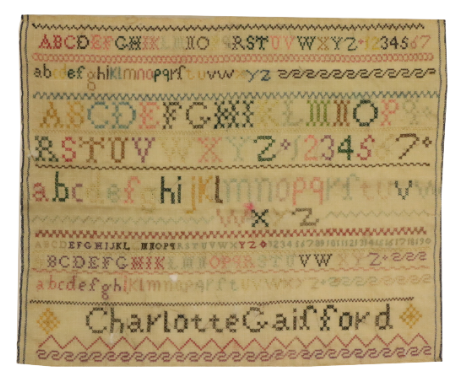 ABCDEFGHIKLMNOPQRSTUVWXYZ1234567
abcdefghiklmnopqrſtuvwxyz
ABCDEFGHIKLMNOPQ
RSTUVWXYZ1234567
abcdefghijklmnopqrſtuvw
wxyz
ABCDEFGHIJKLMNOPQRSTUVWXYZ
ABCDEFGHIKLMNOPQRSTUVWXYZ
abcdefghiklmnopqrſtuvwxyz
Charlotte Gaiſford